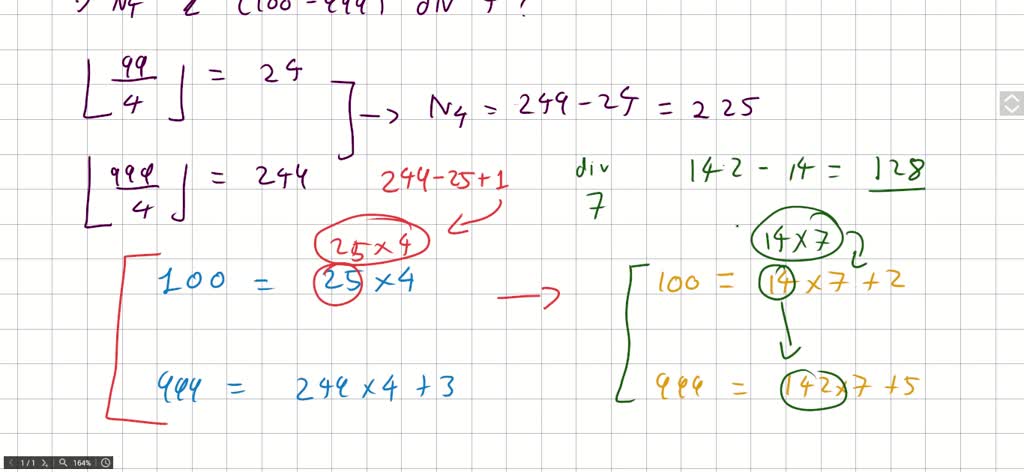 N4 (100-999) div 4 ?
⌊99/4⌋ = 24
→ N4 = 249-24 = 225
⌊999/4⌋ = 249
249-25+1
div 7
142 - 14 = 128
25×4
100 = 25×4
→
14×7
100 = 14×7+2
999 = 249×4+3
999 = 142×7+5
1/1
164%